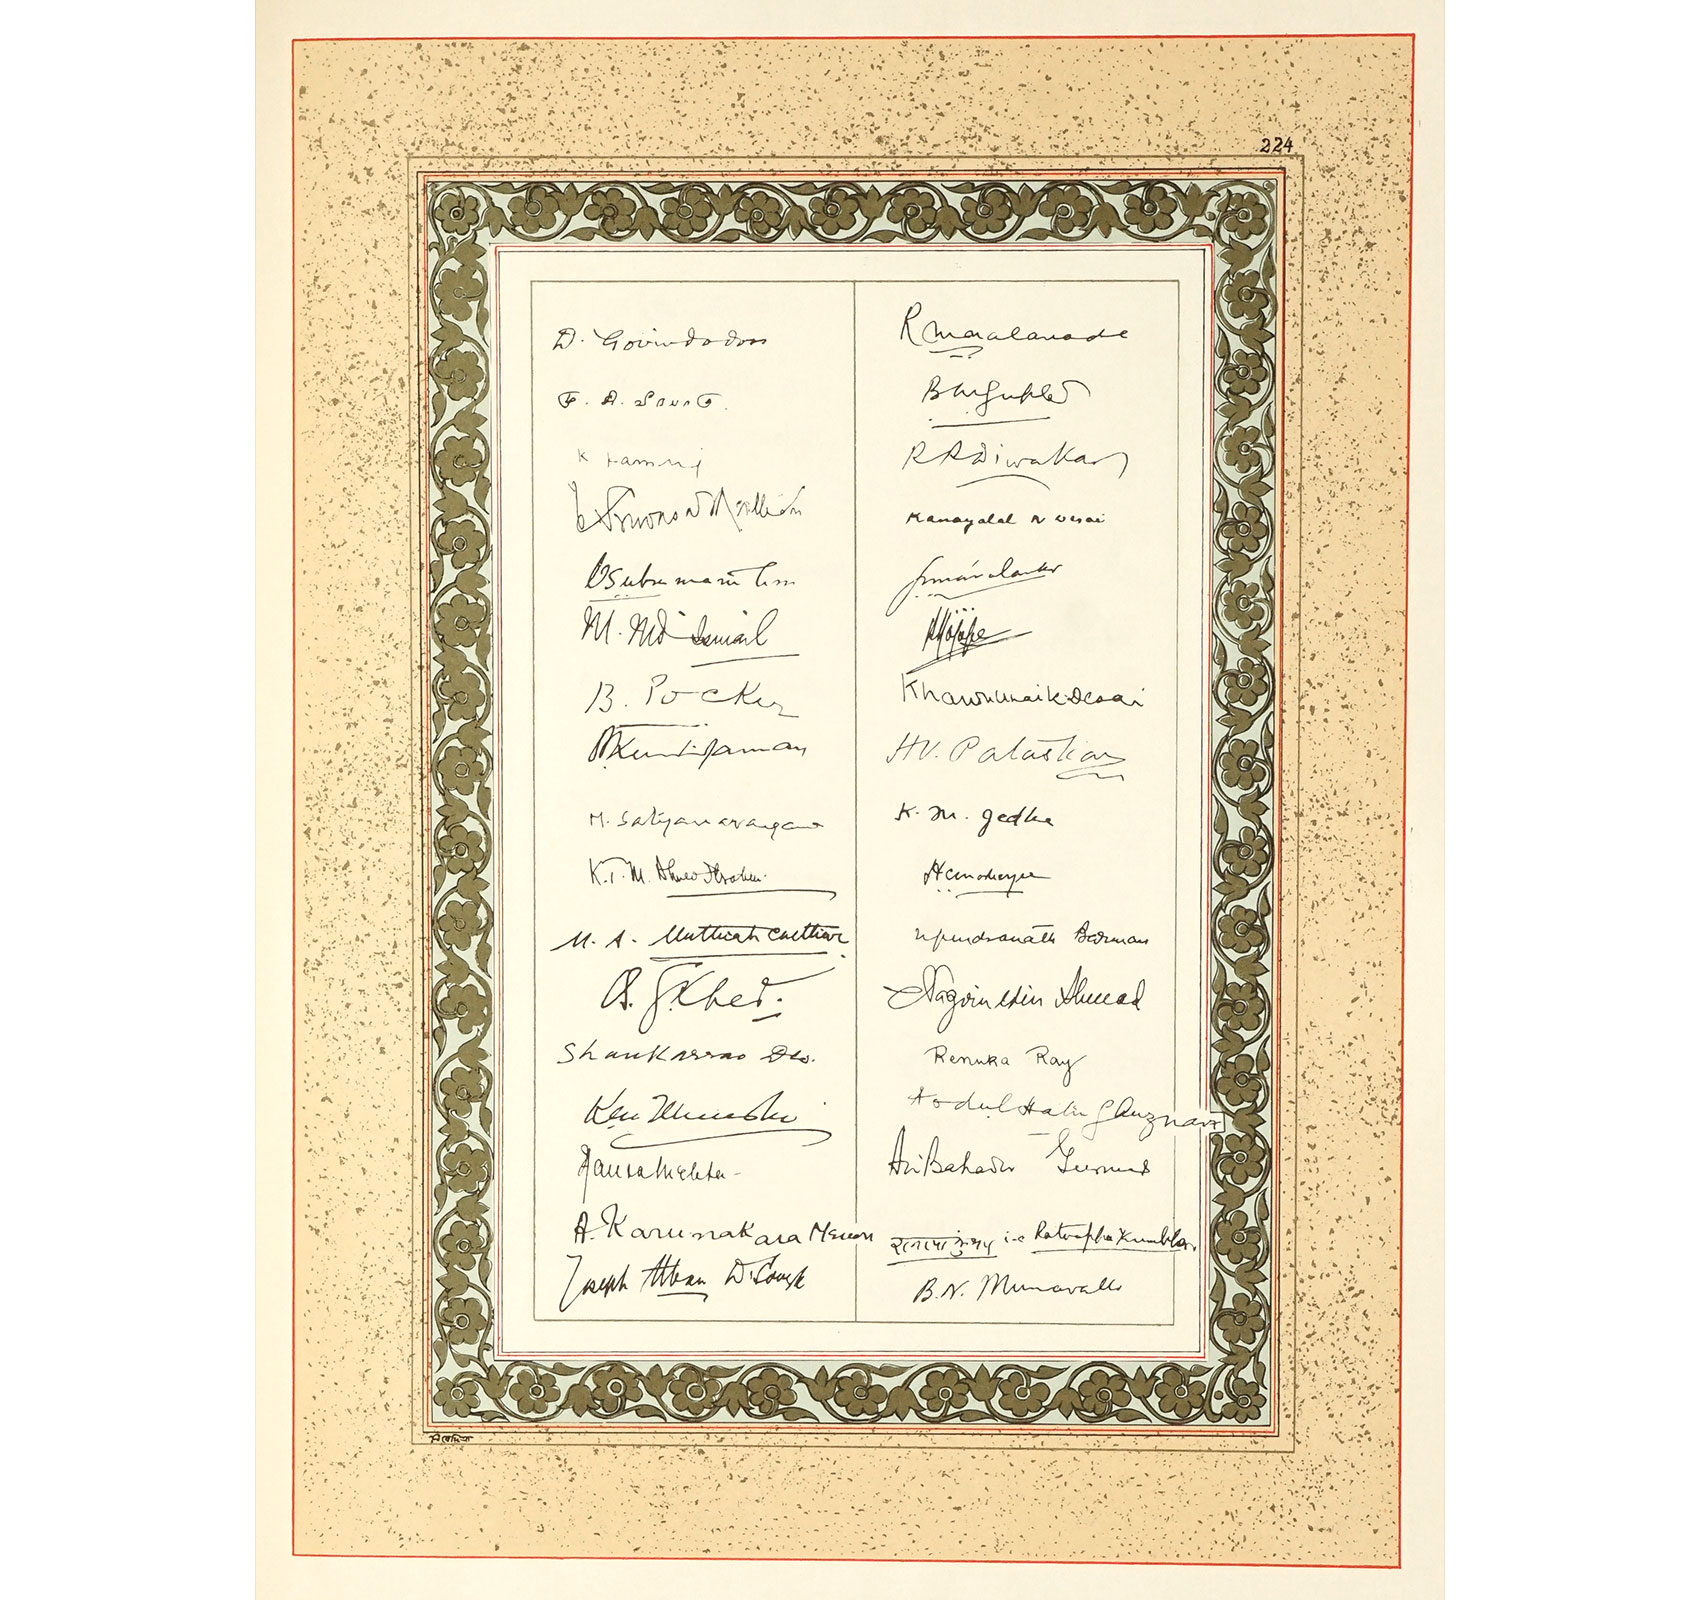 224
D. Govindadoss
M. Md Ismail
B. Pocker
M. Satyanarayana
K.T.M. Ahmed Ibrahim
M. A. Muthiah Chettiar
B. G. Kher.
Shankarrao Deo.
K M Munshi
Hansa Mehta
A. Karunakara Menon
Joseph Alban D'Souza
R M Nalavade
B M Gupte
R R Diwakar
Kanayalal N Desai
Khandubhai K Desai
H V. Pataskar
K. M. Jedhe
Upendranath Barman
Naziruddin Ahmad
Renuka Ray
Abdul Halim Ghuznavi
Ari Bahadur Gurung
रत्नाप्पा कुंभार i.e. Ratnappa Kumbhar
B. N. Munavalli